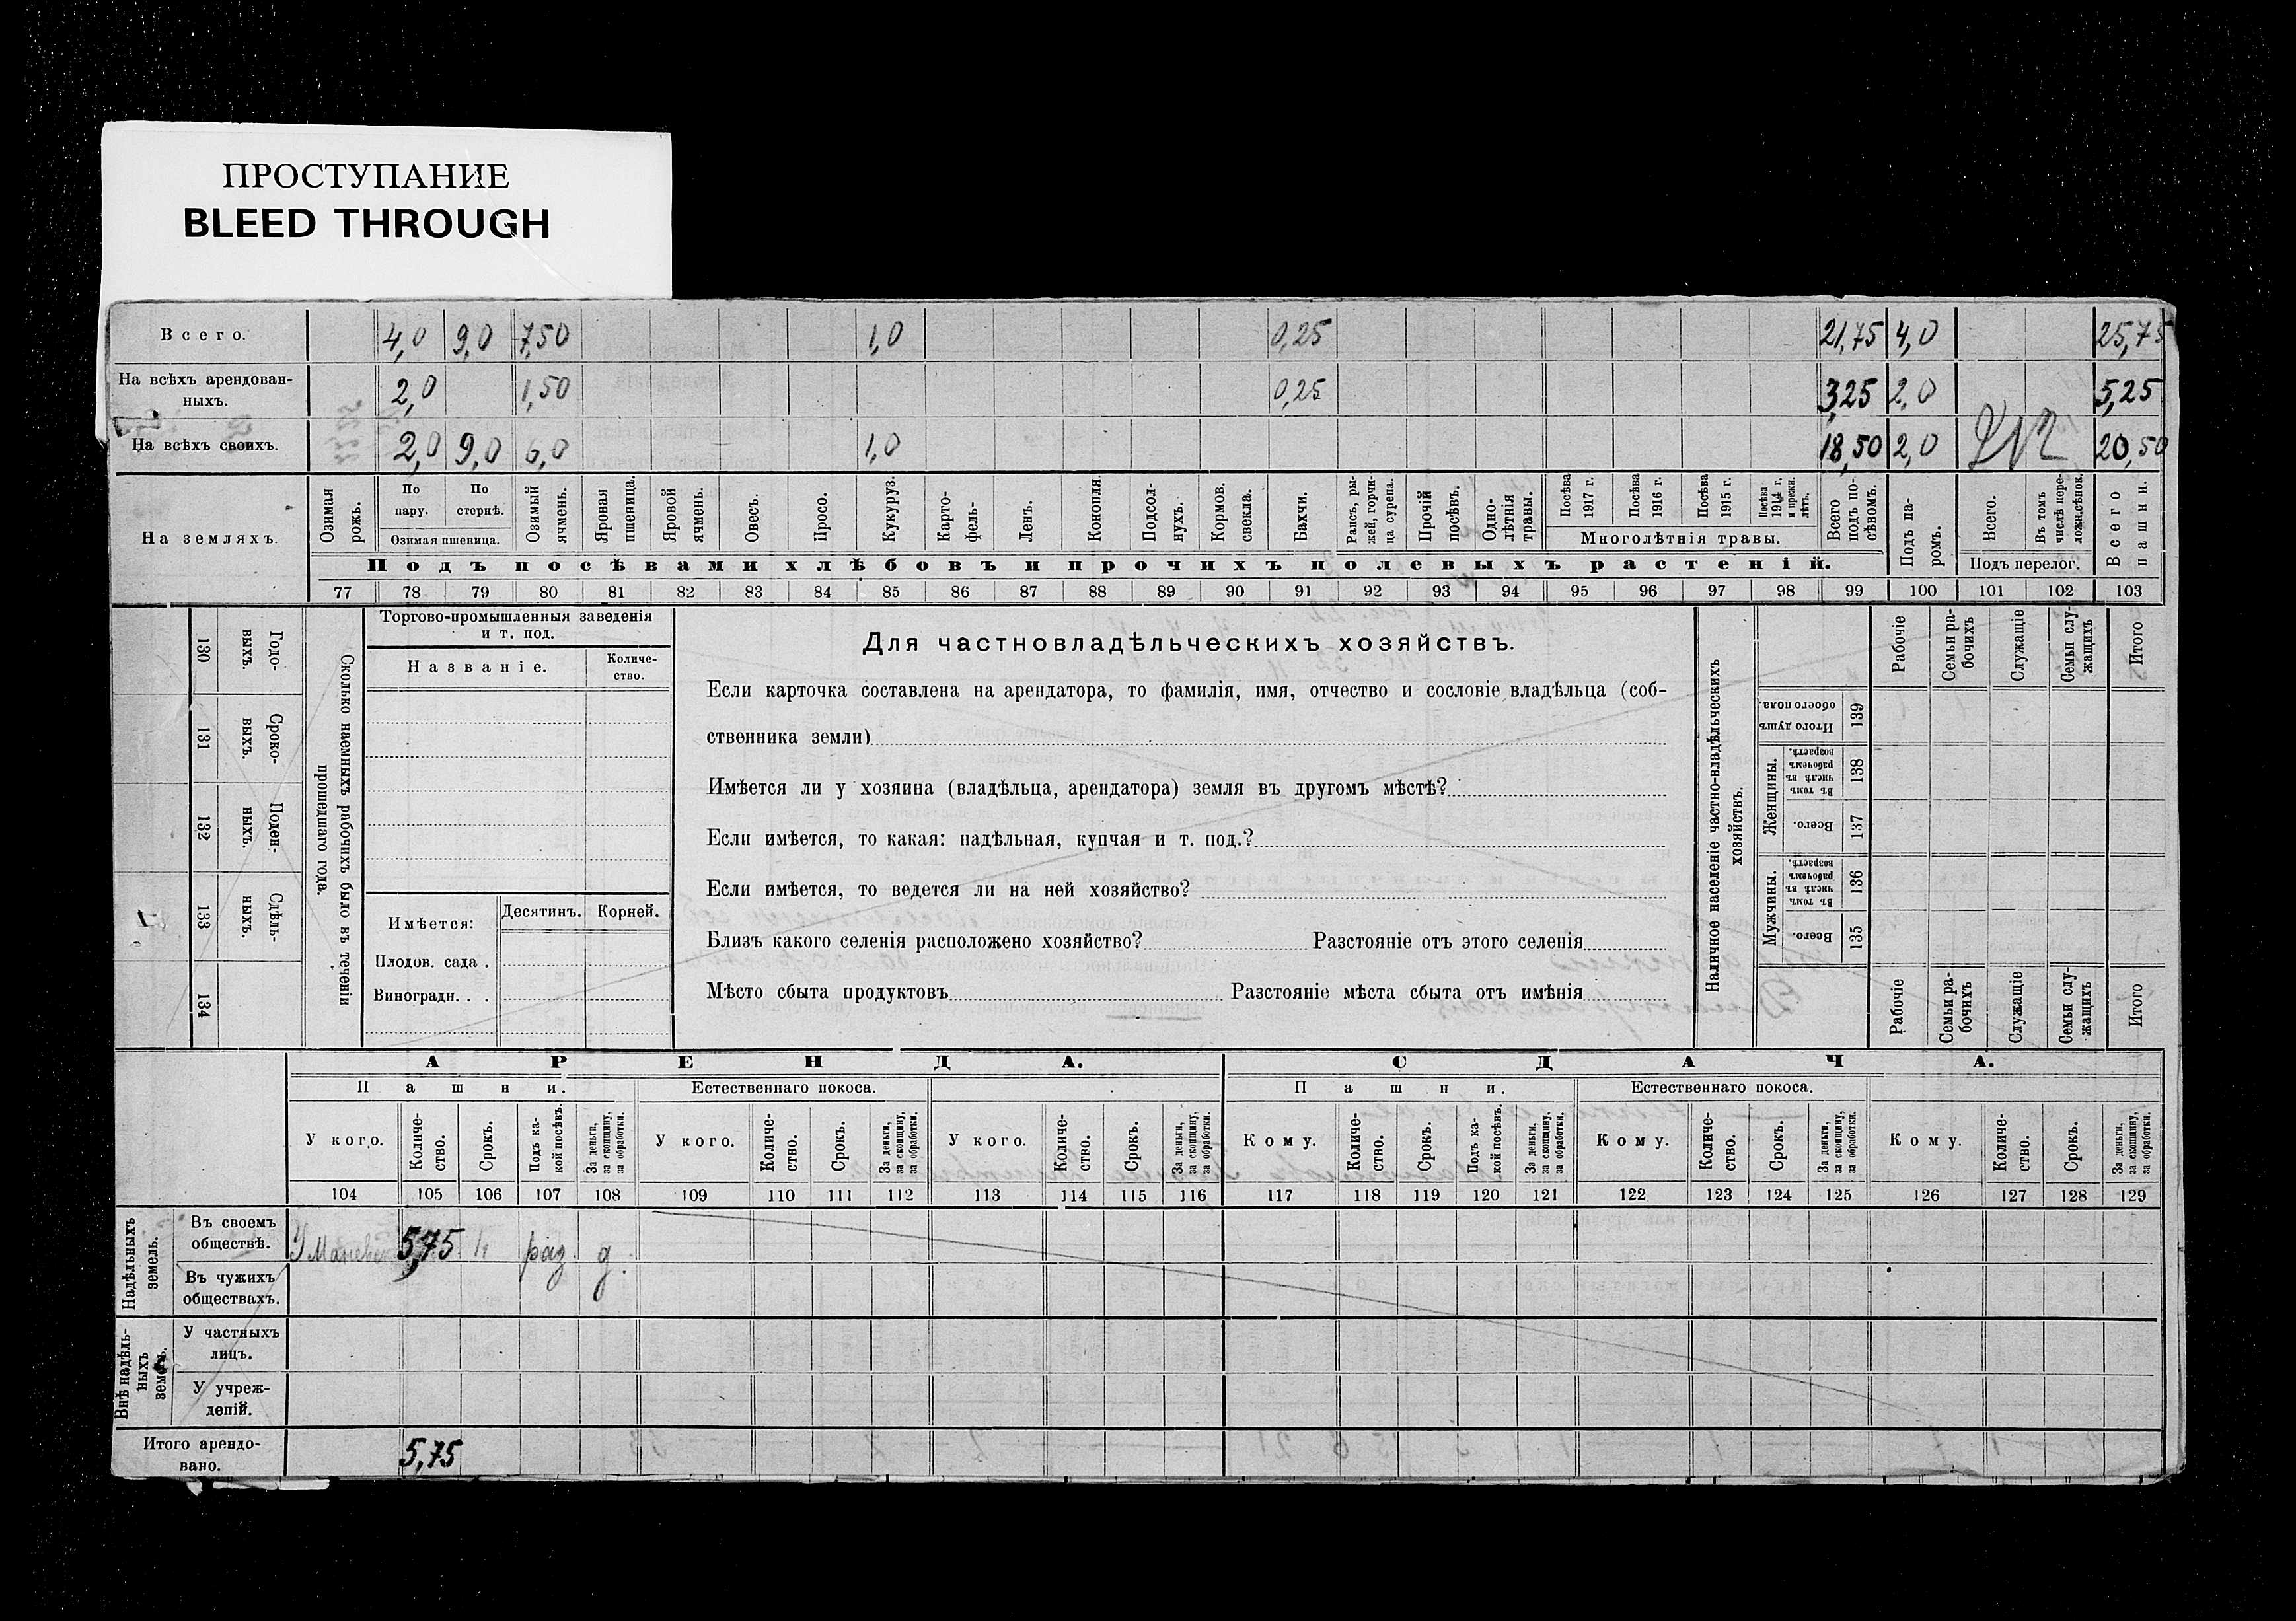 ПРОСТУПАНИЕ
BLEED THROUGH
Всего. 4,0 9,0 7,50 1,0 0,25 21,75 4,0 25,75
На всѣхъ арендован-
ныхъ. 2,0 1,50 0,25 3,25 2,0 5,25
На всѣхъ своихъ. 2,0 9,0 6,0 1,0 18,50 2,0 20,50
На земляхъ.
Озимая рожь.
По пару.
По стернѣ.
Озимая пшеница.
Озимый ячмень.
Яровая пшеница.
Яровой ячмень.
Овесъ.
Просо.
Кукуруз.
Карто-
фель-
Ленъ.
Конопля.
Подсол-
нухъ.
Кормов. свекла.
Бахчи.
Рапсъ, ры-
жей, горчи-
ца сурепа.
Прочій посѣвъ.
Одно-
лѣтнія травы.
Посѣва 1917 г.
Посѣва 1916 г.
Посѣва 1915 г.
Посѣва 1914 г. и прежн. лѣтъ.
Многолѣтнія травы.
Всего подъ по-
сѣвомъ.
Подъ па-
ромъ.
Всего.
Въ томъ числѣ пере-
ложн.сѣнок.
Подъ перелог.
Всего пашни.
Подъ посѣвами хлѣбовъ и прочихъ полевыхъ растеній.
77 78 79 80 81 82 83 84 85 86 87 88 89 90 91 92 93 94 95 96 97 98 99 100 101 102 103
130 Годо-
выхъ.
131 Сроко-
выхъ.
132 Поден-
ныхъ.
133 Сдѣль-
ныхъ.
134
Сколько наемныхъ рабочихъ было въ теченіи
прошедшаго года.
Торгово-промышленныя заведенія
и т. под.
Названіе.
Количе-
ство.
Имѣется: Десятинъ. Корней.
Плодов. сада .
Виноградн. . .
Для частновладѣльческихъ хозяйствъ.
Если карточка составлена на арендатора, то фамилія, имя, отчество и сословіе владѣльца (соб-
ственника земли)
Имѣется ли у хозяина (владѣльца, арендатора) земля въ другомъ мѣстѣ?
Если имѣется, то какая: надѣльная, купчая и т. под.?
Если имѣется, то ведется ли на ней хозяйство?
Близъ какого селенія расположено хозяйство? Разстояніе отъ этого селенія
Мѣсто сбыта продуктовъ Разстояніе мѣста сбыта отъ имѣнія
Наличное населеніе частно-владѣльческихъ
хозяйствъ.
Рабочіе
Семьи ра-
бочихъ
Служащіе
Семьи слу-
жащихъ
Итого
Итого душъ обоего пола. 139
Женщины.
Въ томъ числѣ въ рабочемъ возрастѣ. 138
Всего. 137
Мужчины.
Въ томъ числѣ въ рабочемъ возрастѣ. 136
Всего. 135
Рабочіе
Семьи ра-
бочихъ
Служащіе
Семьи слу-
жащихъ
Итого
АРЕНДА. СДАЧА.
Пашни. Естественнаго покоса. Пашни. Естественнаго покоса.
У кого. Количе-
ство. Срокъ. Подъ ка-
кой посѣвъ. За деньги, за скопщину, за обработки.
У кого. Количе-
ство. Срокъ. За деньги, за скопщину, за обработки.
У кого. Количе-
ство. Срокъ. За деньги, за скопщину, за обработки.
Кому. Количе-
ство. Срокъ. Подъ ка-
кой посѣвъ. За деньги, за скопщину, за обработки.
Кому. Количе-
ство. Срокъ. За деньги, за скопщину, за обработки.
Кому. Количе-
ство. Срокъ. За деньги, за скопщину, за обработки.
104 105 106 107 108 109 110 111 112 113 114 115 116 117 118 119 120 121 122 123 124 125 126 127 128 129
Надѣльныхъ
земель.
Въ своемъ
обществѣ. 5,75 раз. д.
Въ чужихъ
обществахъ.
Внѣ надѣль-
ныхъ
земель.
У частныхъ
лицъ.
У учреж-
деній.
Итого арендо-
вано. 5,75